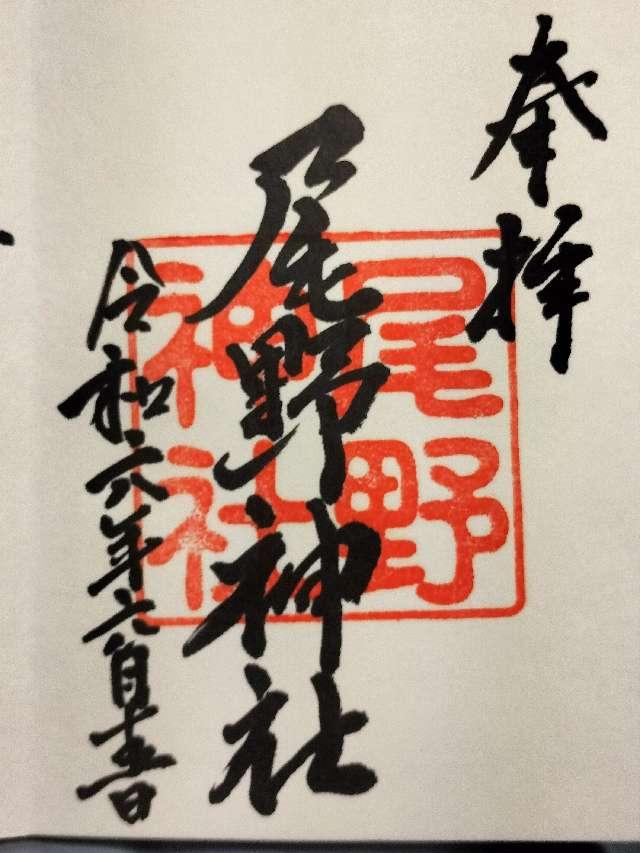 奉拝
尾野神社
尾野
神社
令和六年六月十五日